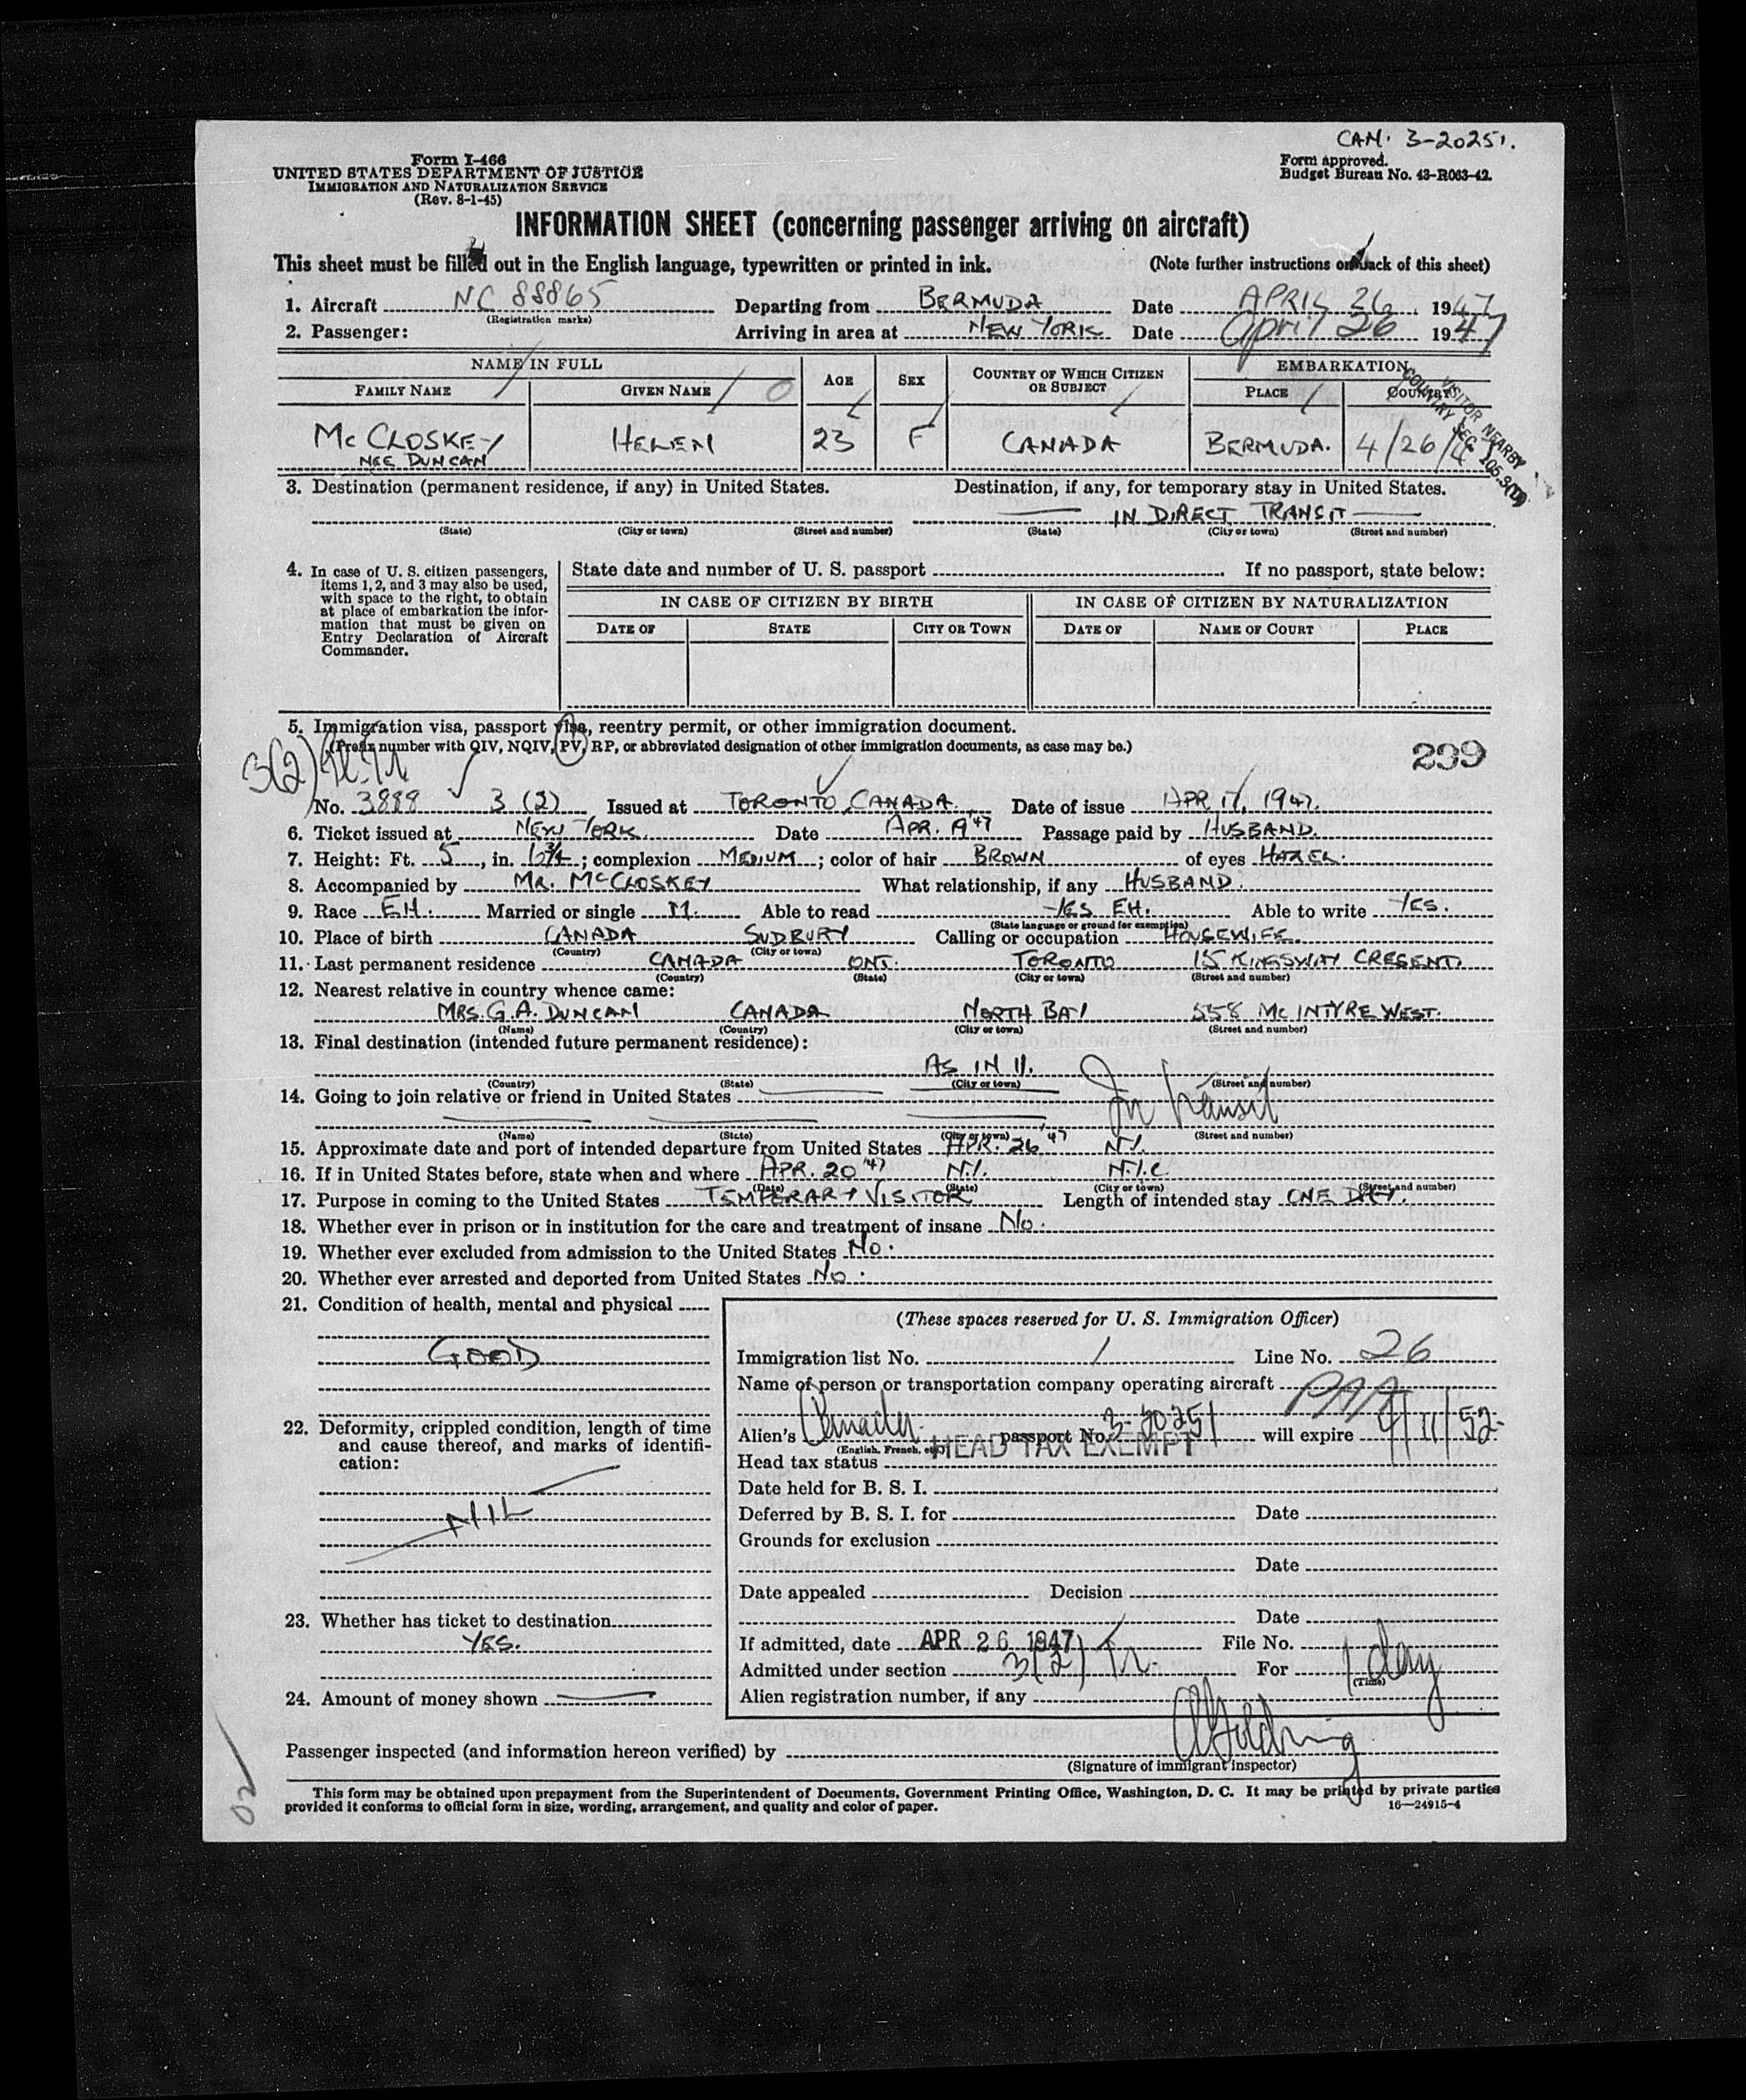 CAN. 3-20251.
Form I-466
UNITED STATES DEPARTMENT OF JUSTICE
IMMIGRATION AND NATURALIZATION SERVICE
(Rev. 8-1-45)
Form approved.
Budget Bureau No. 43-R063-42.
INFORMATION SHEET (concerning passenger arriving on aircraft)
This sheet must be filled out in the English language, typewritten or printed in ink. (Note further instructions on back of this sheet)
1. Aircraft NC 88865 Departing from BERMUDA Date APRIL 26 1947
(Registration marks)
2. Passenger: Arriving in area at NEW YORK Date April 26 1947
NAME IN FULL AGE SEX COUNTRY OF WHICH CITIZEN OR SUBJECT EMBARKATION
FAMILY NAME GIVEN NAME PLACE COUNTRY
VISITOR NEARBY
COUNTRY SEC 105.3(D)
MC CLOSKEY HELEN 23 F CANADA BERMUDA. 4/26/47
NEE DUNCAN
3. Destination (permanent residence, if any) in United States. Destination, if any, for temporary stay in United States.
IN DIRECT TRANSIT
(State) (City or town) (Street and number) (State) (City or town) (Street and number)
4. In case of U. S. citizen passengers,
items 1, 2, and 3 may also be used,
with space to the right, to obtain
at place of embarkation the infor-
mation that must be given on
Entry Declaration of Aircraft
Commander.
State date and number of U. S. passport If no passport, state below:
IN CASE OF CITIZEN BY BIRTH IN CASE OF CITIZEN BY NATURALIZATION
DATE OF STATE CITY OR TOWN DATE OF NAME OF COURT PLACE
5. Immigration visa, passport visa, reentry permit, or other immigration document.
(Prefix number with QIV, NQIV, PV, RP, or abbreviated designation of other immigration documents, as case may be.)
299
3(2)
No. 3888 3 (2) Issued at TORONTO, CANADA. Date of issue APR 17, 1947.
6. Ticket issued at NEW YORK. Date APR. 19 '47 Passage paid by HUSBAND.
7. Height: Ft. 5, in. ; complexion MEDIUM; color of hair BROWN of eyes HAZEL.
8. Accompanied by MR. MCCLOSKEY What relationship, if any HUSBAND.
9. Race EH. Married or single M. Able to read YES EH. Able to write YES.
(State language or ground for exemption)
10. Place of birth CANADA SUDBURY Calling or occupation HOUSEWIFE.
(Country) (City or town)
11. Last permanent residence CANADA ONT. TORONTO 15 KINGSWAY CRESENT.
(Country) (State) (City or town) (Street and number)
12. Nearest relative in country whence came:
MRS. G. A. DUNCAN CANADA NORTH BAY 558 MC INTYRE WEST.
(Name) (Country) (City or town) (Street and number)
13. Final destination (intended future permanent residence):
AS IN 11.
(Country) (State) (City or town) (Street and number)
14. Going to join relative or friend in United States
In transit
(Name) (State) (City or town) (Street and number)
15. Approximate date and port of intended departure from United States APR. 26 '47 N.Y.
16. If in United States before, state when and where APR. 20 '47 N.Y. N.Y.C.
(Date) (State) (City or town) (Street and number)
17. Purpose in coming to the United States TEMPERARY VISITOR Length of intended stay ONE DAY.
18. Whether ever in prison or in institution for the care and treatment of insane NO.
19. Whether ever excluded from admission to the United States NO.
20. Whether ever arrested and deported from United States NO.
21. Condition of health, mental and physical
GOOD
22. Deformity, crippled condition, length of time
and cause thereof, and marks of identifi-
cation:
NIL
23. Whether has ticket to destination
YES.
24. Amount of money shown
(These spaces reserved for U. S. Immigration Officer)
Immigration list No. 1 Line No. 26
Name of person or transportation company operating aircraft PAA
Alien's Canadian passport No. 3-20251 will expire 4/11/52
(English, French, etc.)
Head tax status HEAD TAX EXEMPT
Date held for B. S. I.
Deferred by B. S. I. for Date
Grounds for exclusion
Date
Date appealed Decision
Date
If admitted, date APR 26 1947 File No.
Admitted under section 3(2) Tr. For 1 day
(Time)
Alien registration number, if any
Passenger inspected (and information hereon verified) by
(Signature of immigrant inspector)
This form may be obtained upon prepayment from the Superintendent of Documents, Government Printing Office, Washington, D. C. It may be printed by private parties
provided it conforms to official form in size, wording, arrangement, and quality and color of paper. 16—24915-4